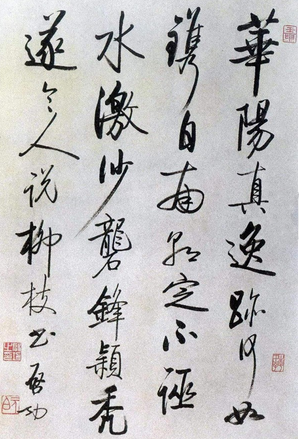 華陽真逸跡何如
鐫自南朝定不誣
水激沙礱鋒穎禿
遂令人說柳枝書 啓功